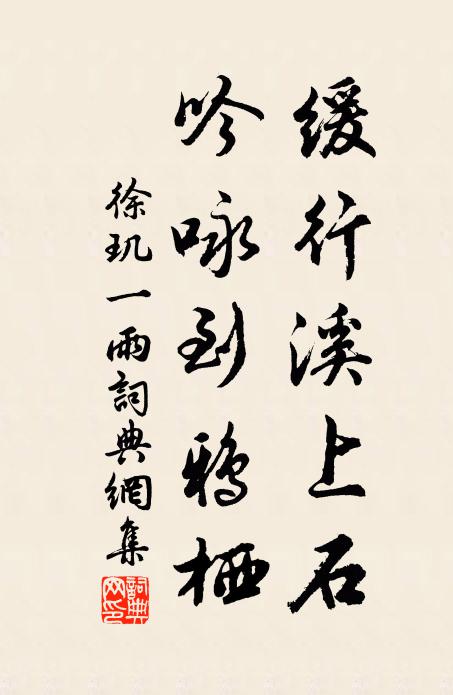 緩行溪上石
吟咏到鴉栖
徐玑一雨詞典網集
詞典網印